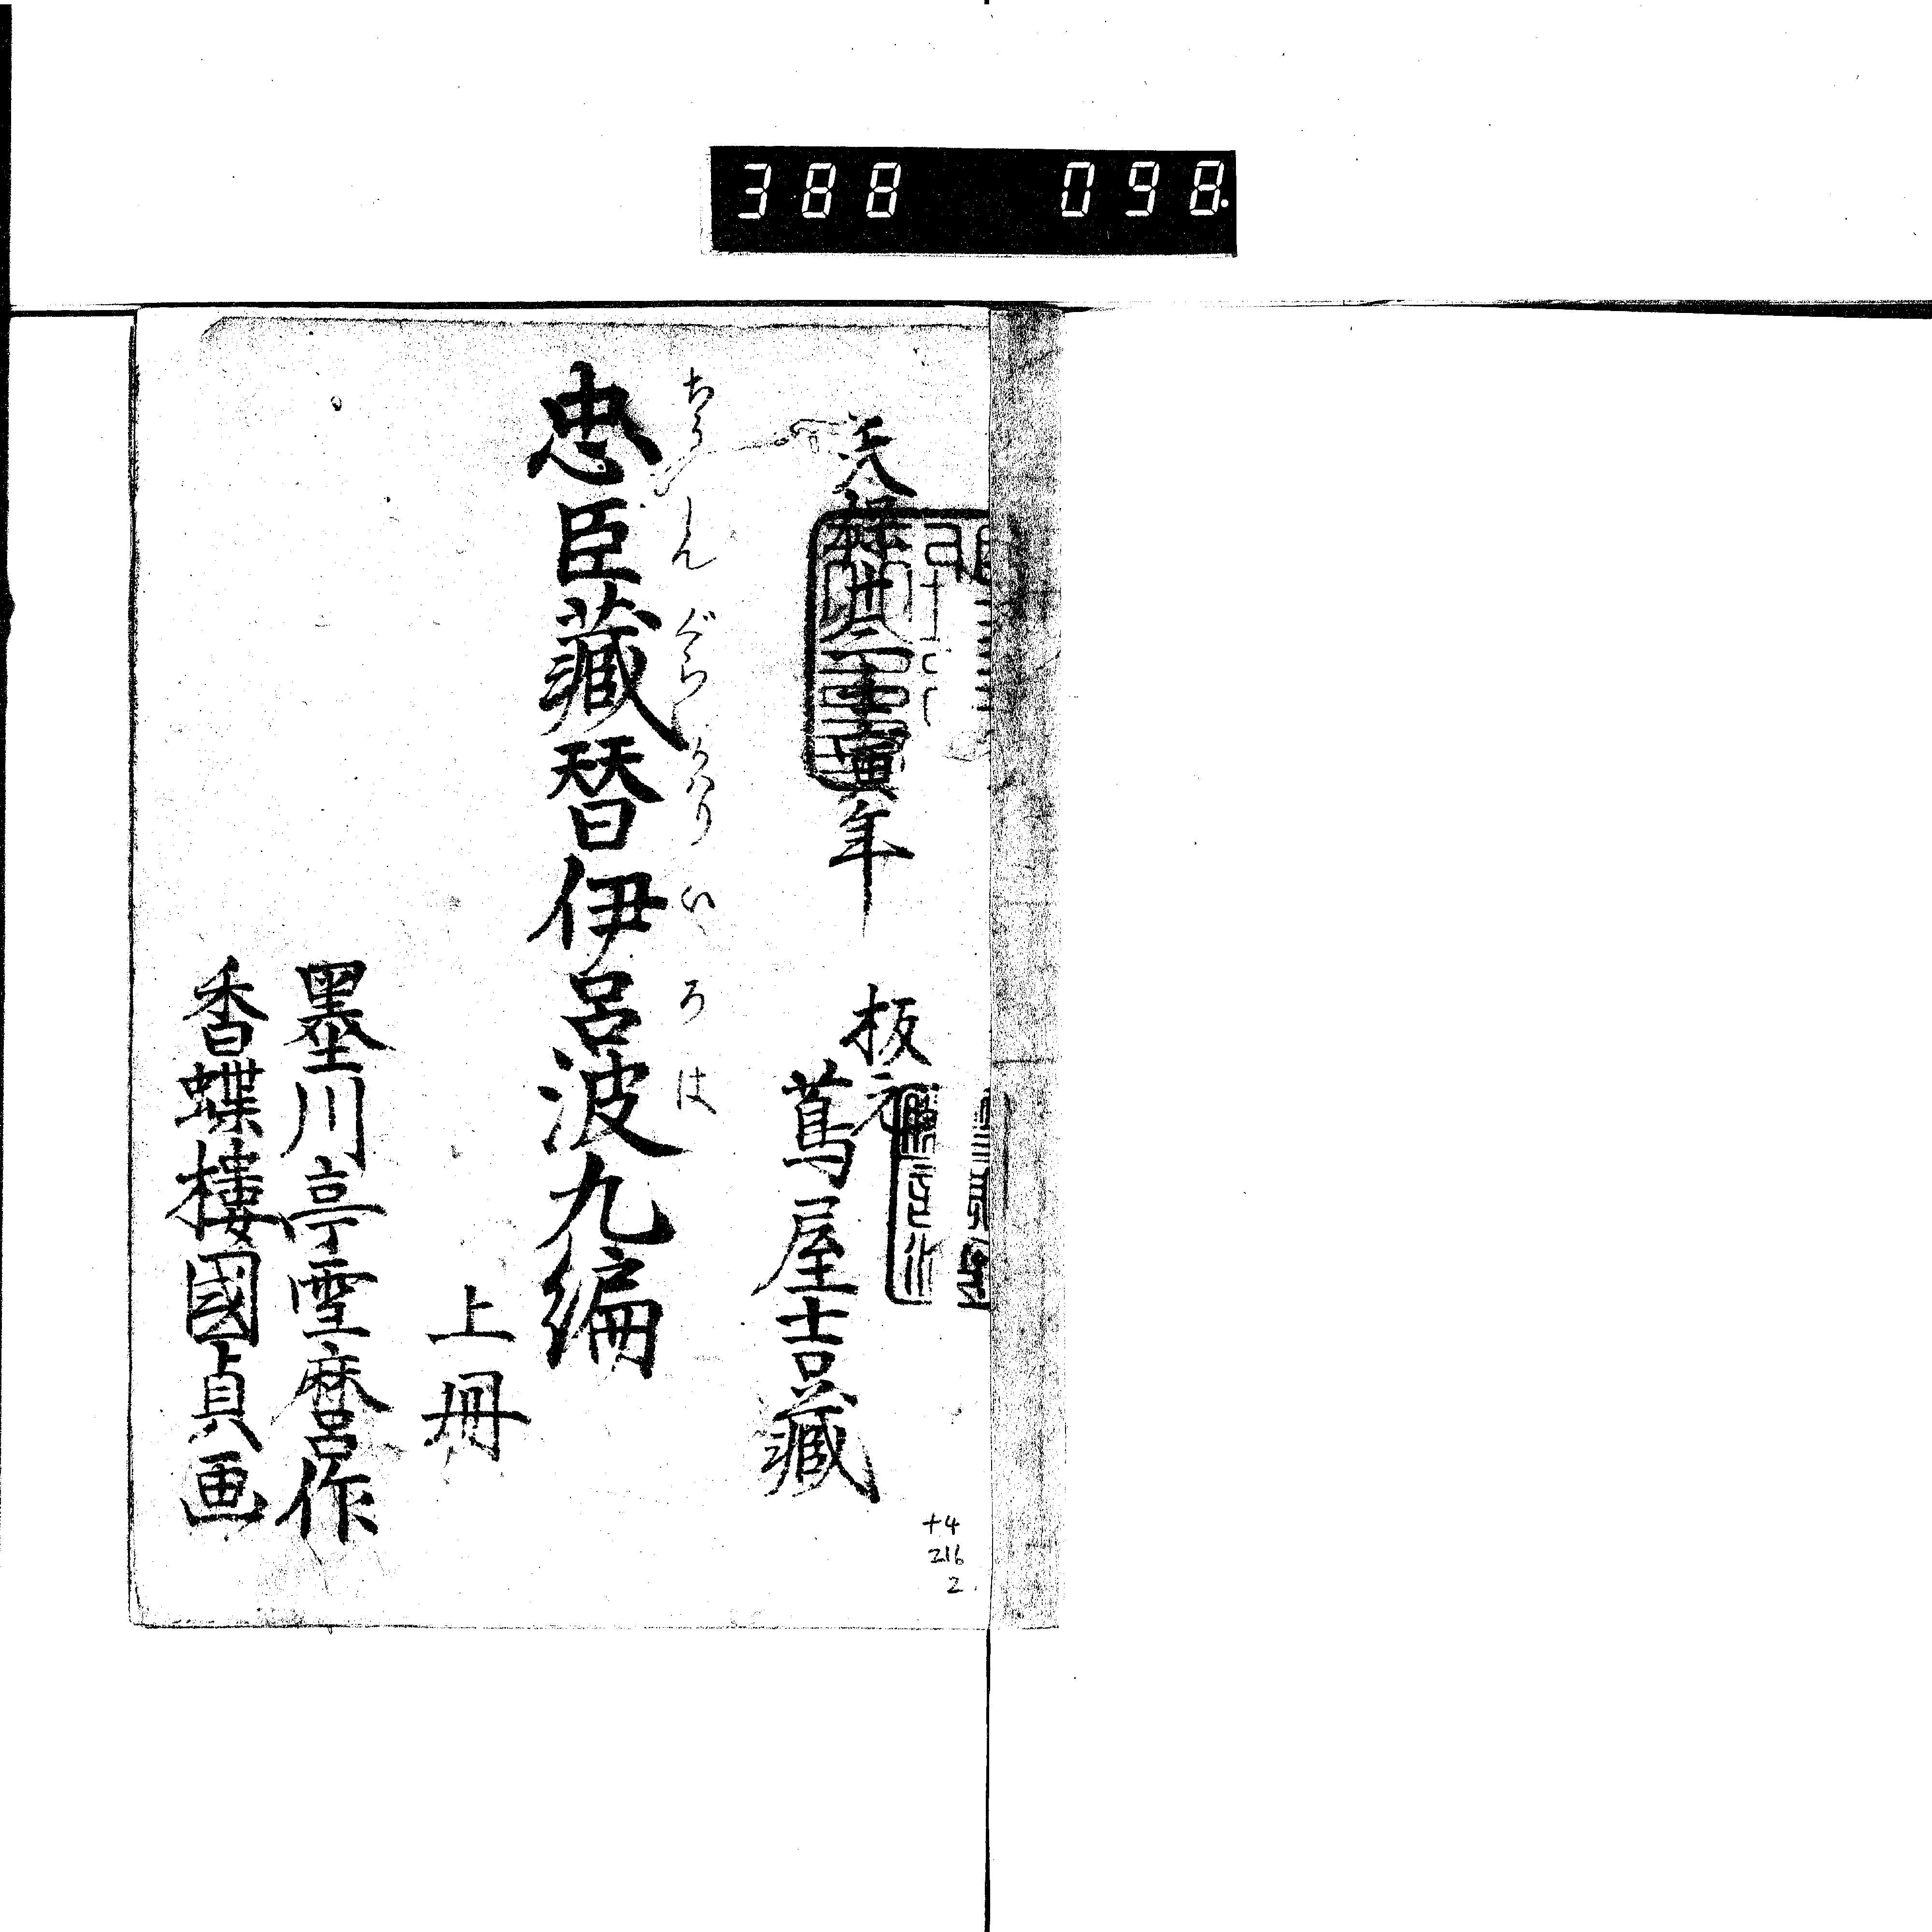 388 098.
壬寅年
板元
蔦屋吉藏
ちうしんぐらかハりいろは
忠臣藏替伊呂波九編
上冊
墨川亭雪麿作
香蝶樓國貞画
t4
216
2